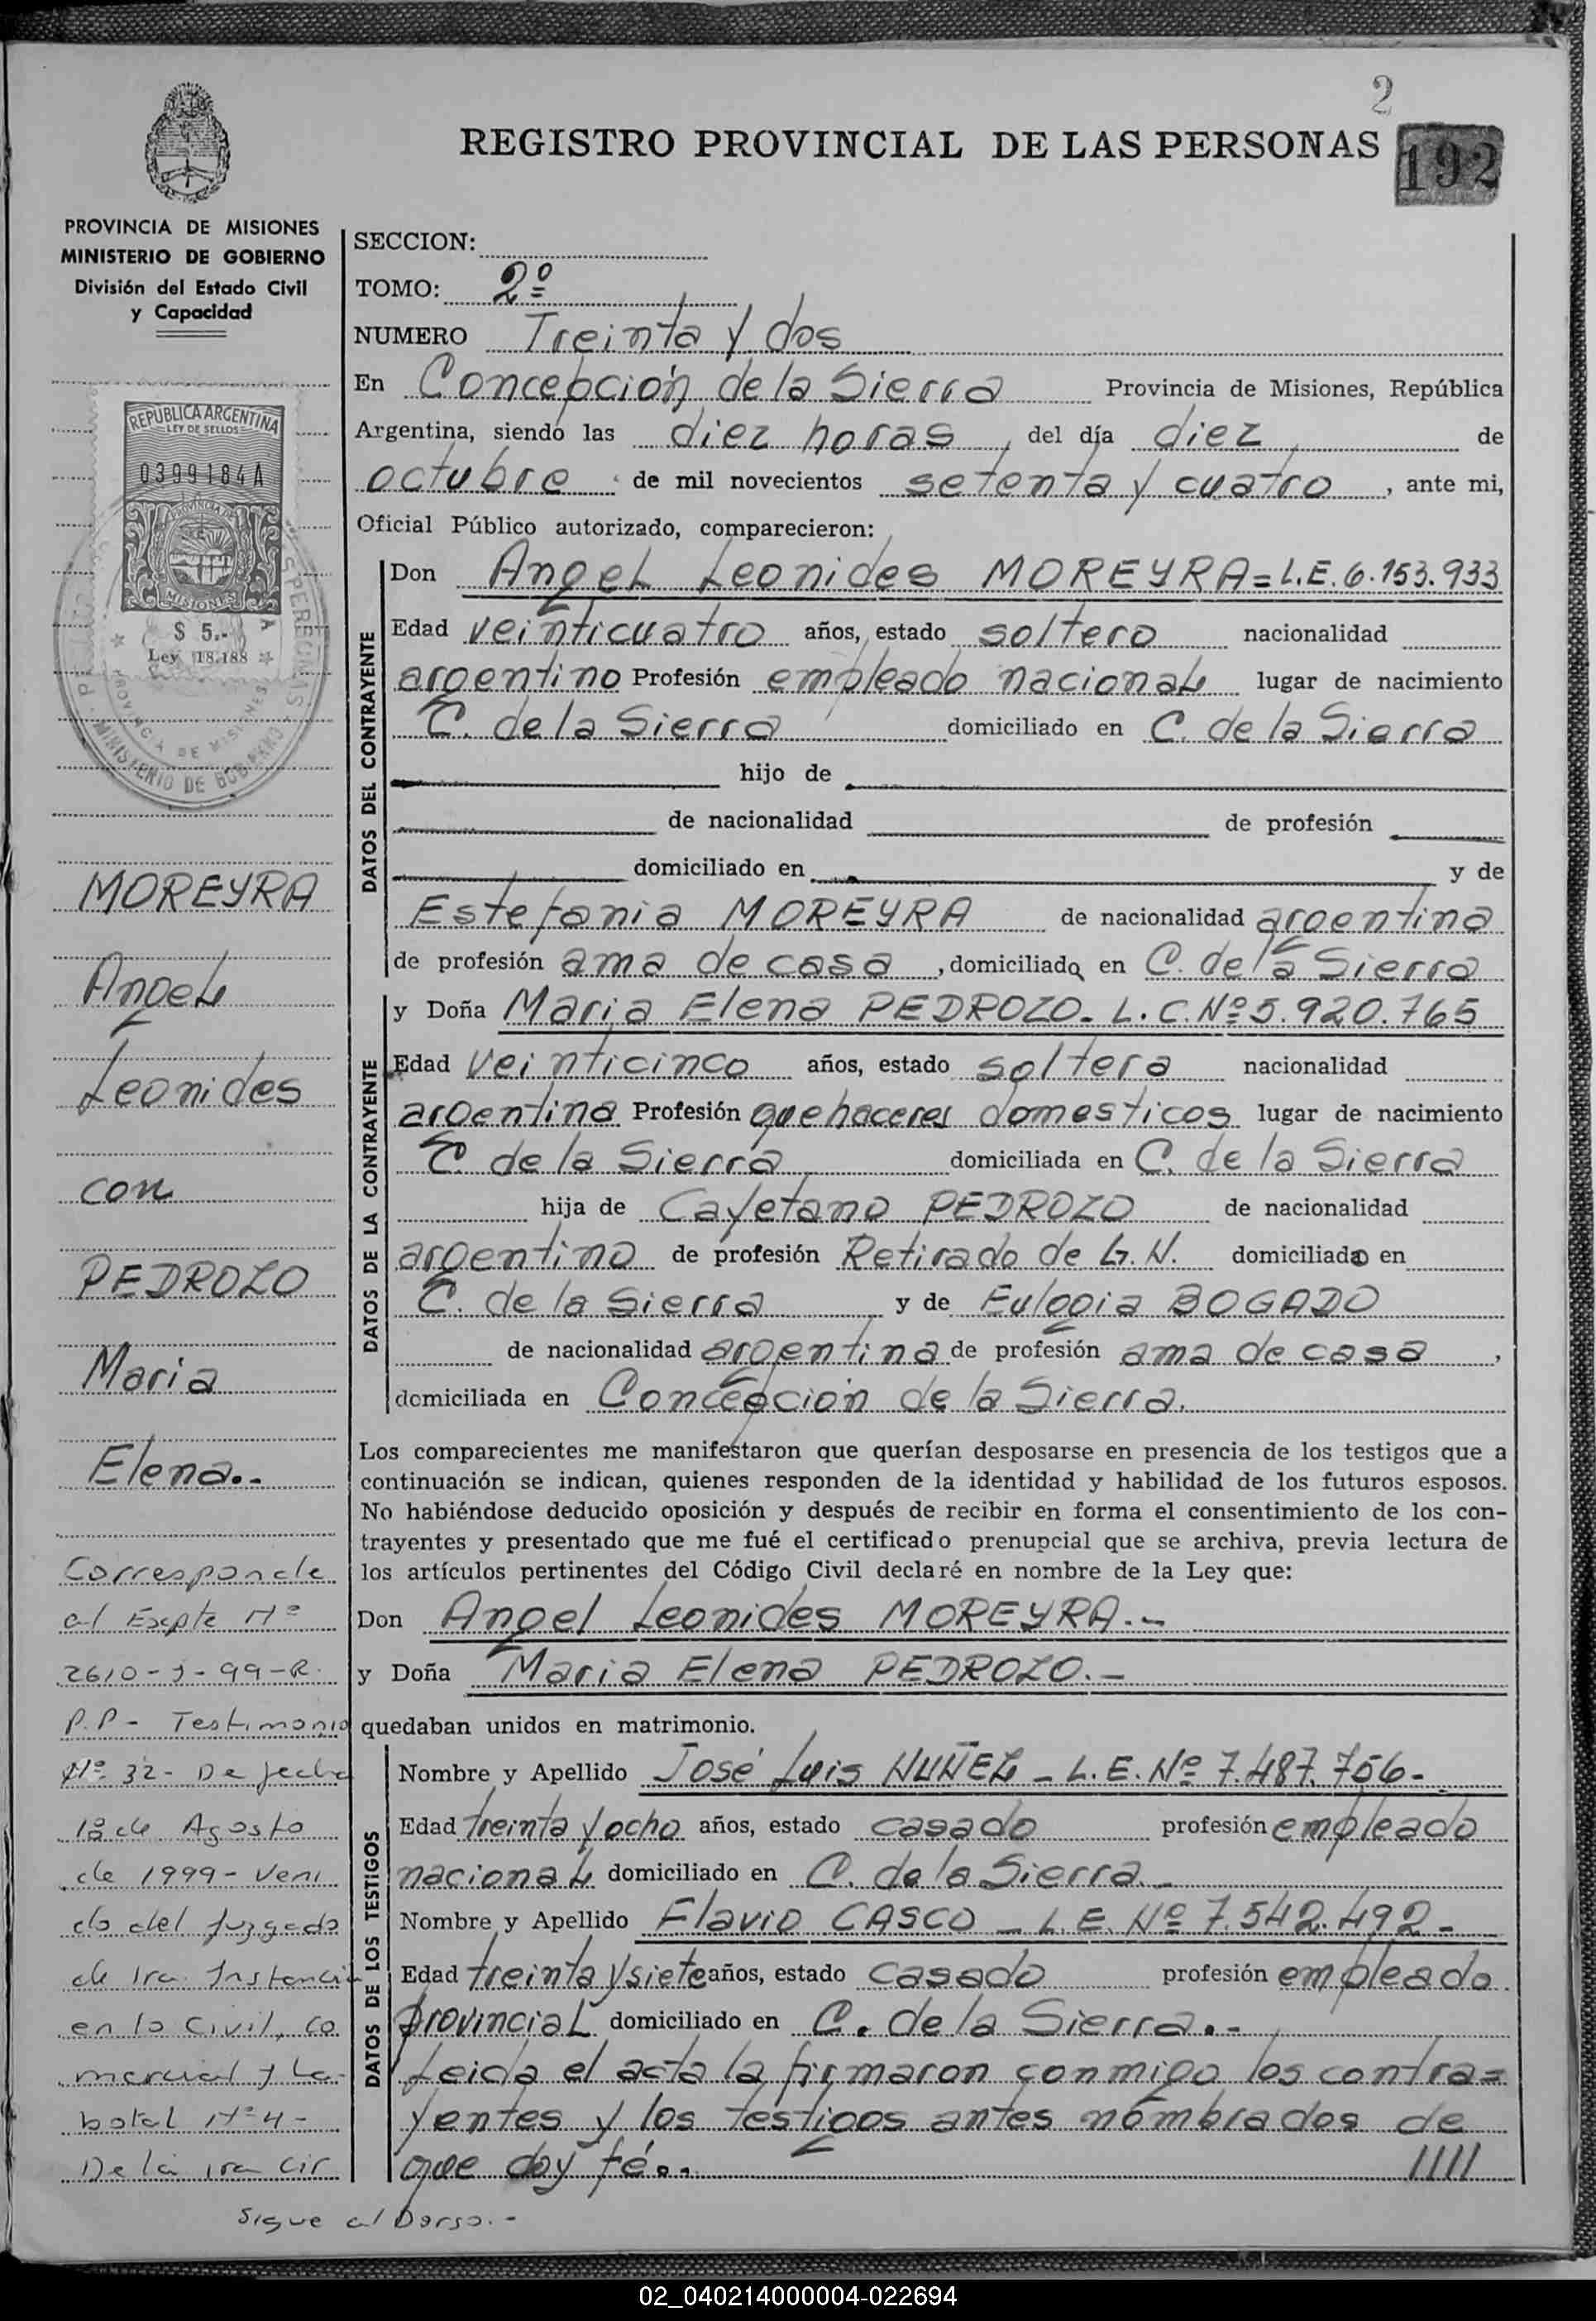 2
REGISTRO PROVINCIAL DE LAS PERSONAS
192
PROVINCIA DE MISIONES
MINISTERIO DE GOBIERNO
División del Estado Civil
y Capacidad
REPUBLICA ARGENTINA
LEY DE SELLOS
0399184A
MISIONES
$ 5.-
Ley 18.188
PROVINCIA DE MISIONES
MINISTERIO DE GOBIERNO
MOREYRA
Angel
Leonides
con
PEDROZO
Maria
Elena.-
Corresponde
al Expte Nº
2610-J-99-R.
P.P- Testimonio
Nº 32- De fecha
18 de Agosto
de 1999- veni
do del Juzgado
de 1ra. Instancia
en lo Civil, Co
mercial y La-
boral Nº 4-
De la 1ra Cir
Sigue al Dorso.-
SECCION:
TOMO: 2º
NUMERO Treinta y dos
En Concepción de la Sierra Provincia de Misiones, República
Argentina, siendo las diez horas, del día diez de
octubre de mil novecientos setenta y cuatro, ante mi,
Oficial Público autorizado, comparecieron:
DATOS DEL CONTRAYENTE
Don Angel Leonides MOREYRA=L.E.6.153.933
Edad veinticuatro años, estado soltero nacionalidad
argentino Profesión empleado nacional lugar de nacimiento
C. de la Sierra domiciliado en C. de la Sierra
hijo de
de nacionalidad de profesión
domiciliado en y de
Estefania MOREYRA de nacionalidad argentina
de profesión ama de casa, domiciliada en C. de la Sierra
DATOS DE LA CONTRAYENTE
y Doña Maria Elena PEDROZO- L.C.Nº5.920.765
Edad veinticinco años, estado soltera nacionalidad
argentina Profesión quehaceres domesticos lugar de nacimiento
C. de la Sierra domiciliada en C. de la Sierra
hija de Cayetano PEDROZO de nacionalidad
argentino de profesión Retirado de G.N. domiciliado en
C. de la Sierra y de Eulogia BOGADO
de nacionalidad argentina de profesión ama de casa,
domiciliada en Concepción de la Sierra.
Los comparecientes me manifestaron que querían desposarse en presencia de los testigos que a
continuación se indican, quienes responden de la identidad y habilidad de los futuros esposos.
No habiéndose deducido oposición y después de recibir en forma el consentimiento de los con-
trayentes y presentado que me fué el certificado prenupcial que se archiva, previa lectura de
los artículos pertinentes del Código Civil declaré en nombre de la Ley que:
Don Angel Leonides MOREYRA.-
y Doña Maria Elena PEDROZO.-
quedaban unidos en matrimonio.
DATOS DE LOS TESTIGOS
Nombre y Apellido José Luis NUÑEZ - L.E. Nº 7.487.756-
Edad treinta y ocho años, estado casado profesión empleado
nacional domiciliado en C. de la Sierra.-
Nombre y Apellido Flavio CASCO - L.E. Nº 7.542.492-
Edad treinta y siete años, estado casado profesión empleado
provincial domiciliado en C. de la Sierra.-
Leida el acta la firmaron conmigo los contra=
yentes y los testigos antes nombrados de
que doy fé.. ////
02_040214000004-022694